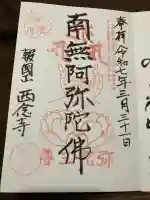 奉拝 令和七年三月三十一日
南無阿弥陀佛
報國山 西念寺